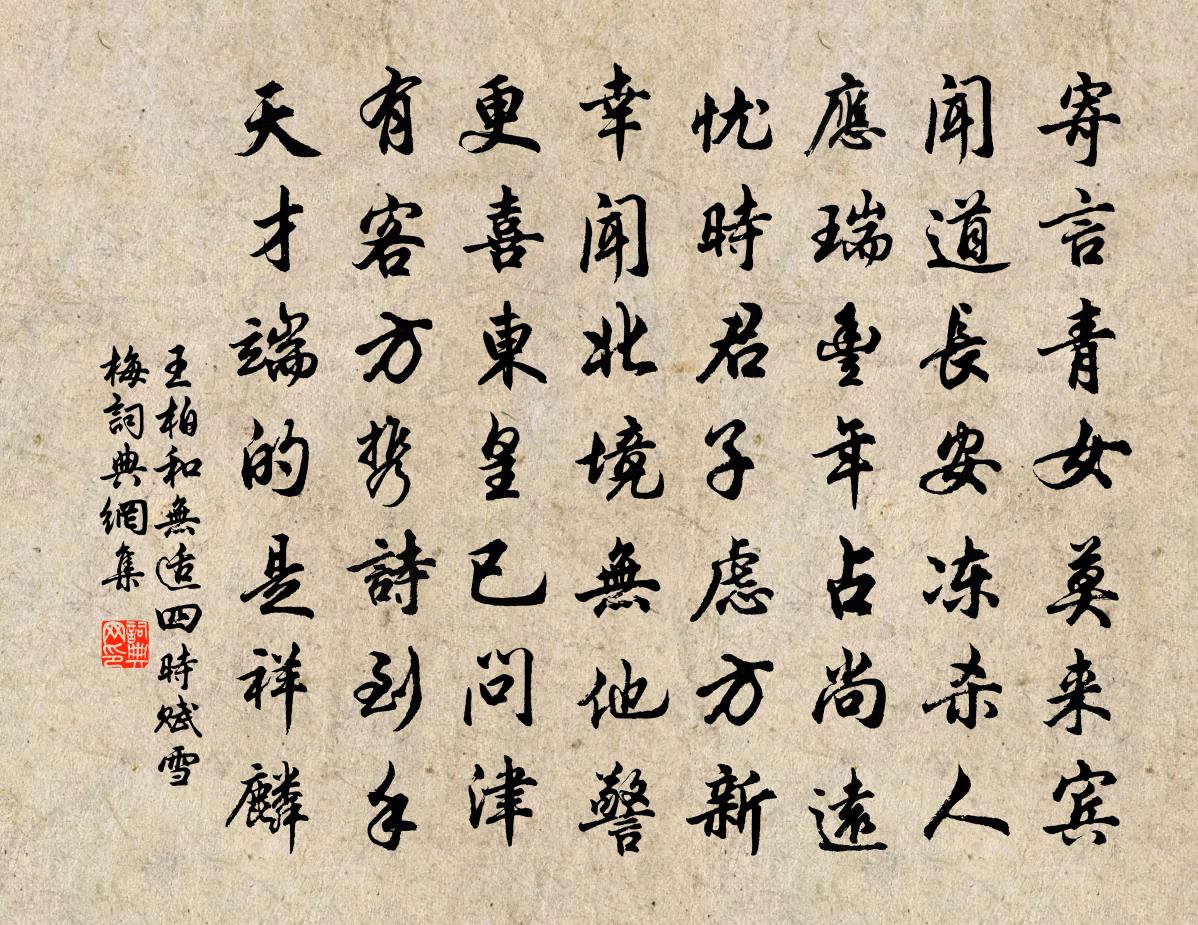 寄言青女莫来宾
闻道長安冻杀人
應瑞豊年占尚遠
忧時君子虑方新
幸闻北境無他警
更喜東皇已问津
有客方携詩到手
天才端的是祥麟
王柏和無适四時赋雪
梅詞典網集
詞典网印